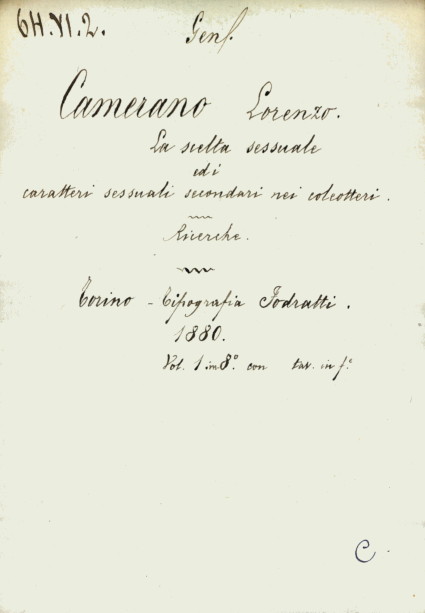 6H.VI.2.
Gen.
Camerano Lorenzo.
La scelta sessuale
ed i
caratteri sessuali secondari nei coleotteri.
Ricerche.
Torino - Tipografia Fodratti.
1880.
Vol. 1 in 8º. con tav. in fº.
C